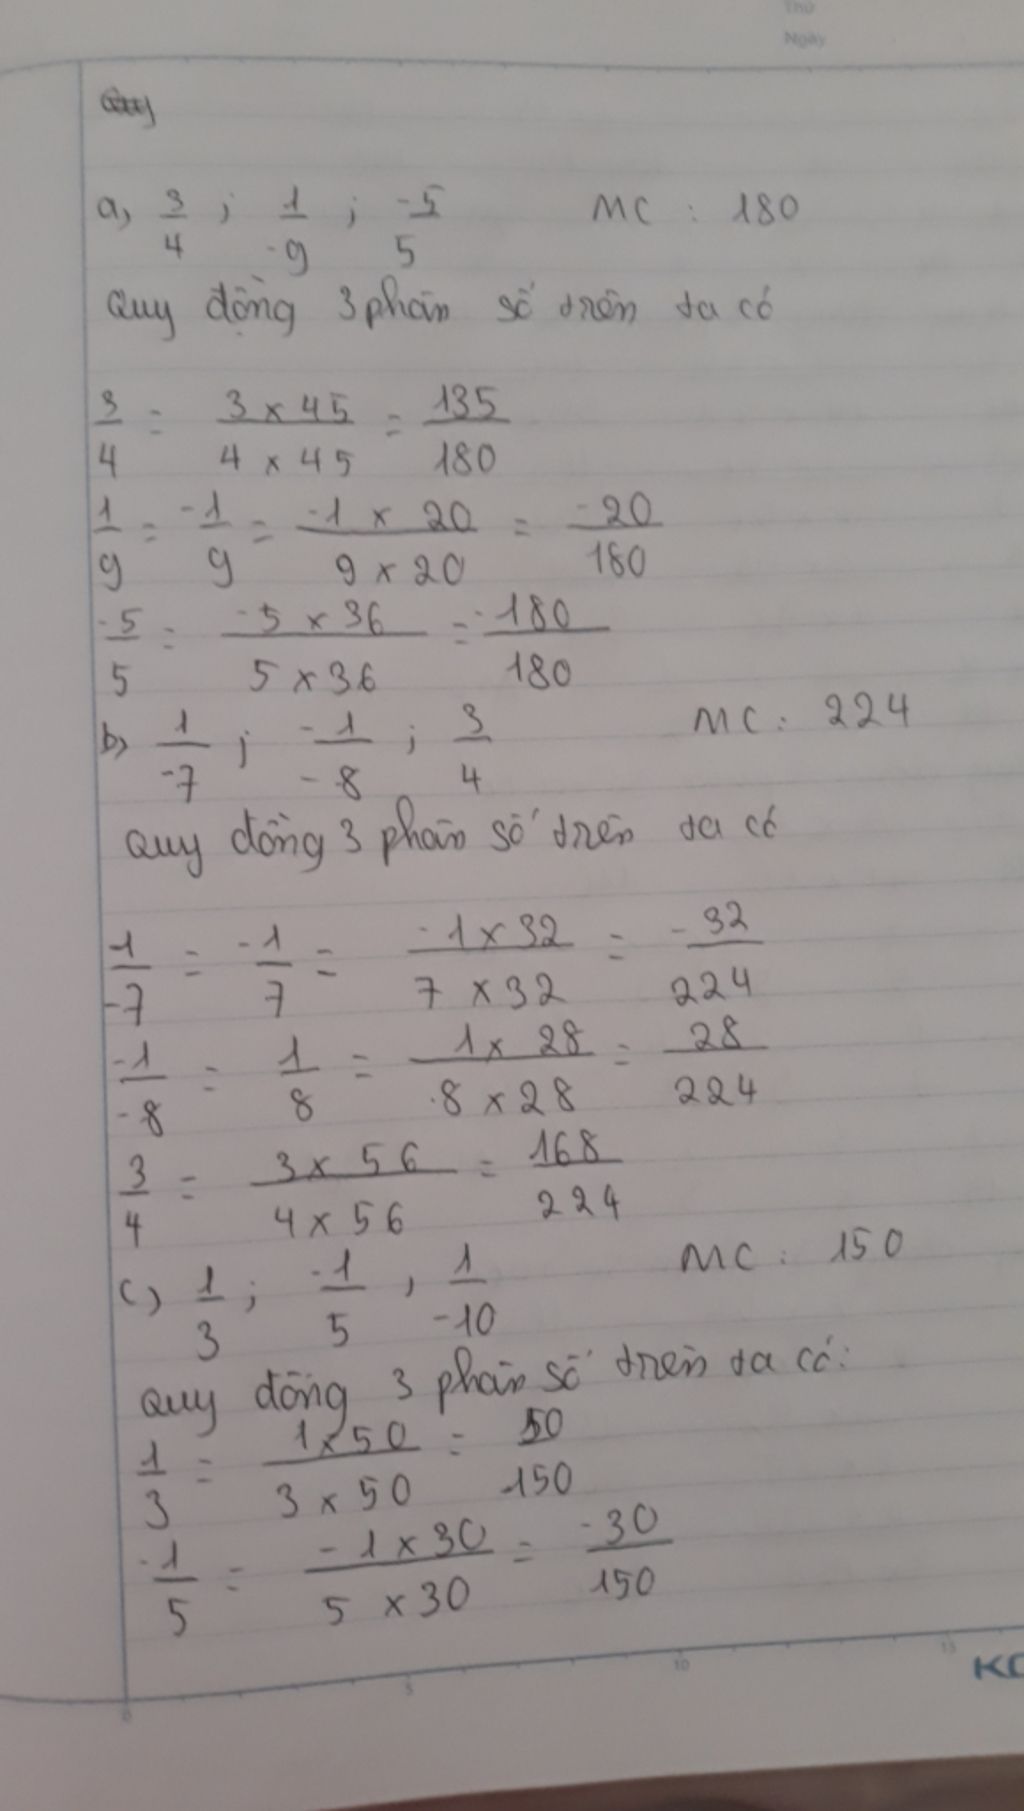 Thứ
Ngày
a, 3/4 ; 1/-9 ; -5/5 MC : 180
Quy đồng 3 phân số trên ta có
3/4 = 3 x 45 / 4 x 45 = 135/180
1/9 = -1/9 = -1 x 20 / 9 x 20 = -20/180
-5/5 = -5 x 36 / 5 x 36 = -180/180
b) 1/-7 ; -1/-8 ; 3/4 MC : 224
Quy đồng 3 phân số trên ta có
1/-7 = -1/7 = -1 x 32 / 7 x 32 = -32/224
-1/-8 = 1/8 = 1 x 28 / 8 x 28 = 28/224
3/4 = 3 x 56 / 4 x 56 = 168/224
c) 1/3 ; -1/5 , 1/-10 MC : 150
Quy đồng 3 phân số trên ta có:
1/3 = 1 x 50 / 3 x 50 = 50/150
-1/5 = -1 x 30 / 5 x 30 = -30/150
0 5 10 15